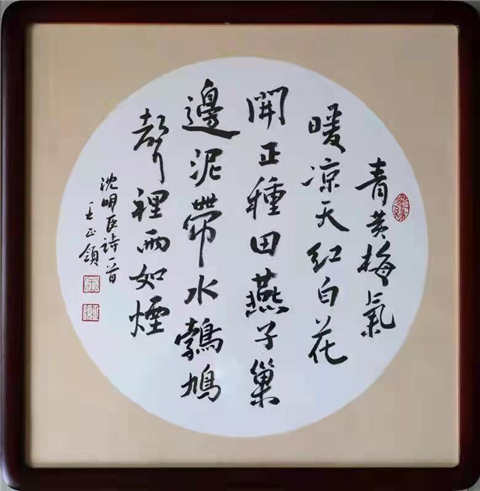 青黄梅氣
暖凉天紅白花
開正種田燕子巢
邊泥帶水鵓鳩
聲裡雨如煙
沈明臣詩一首
王正